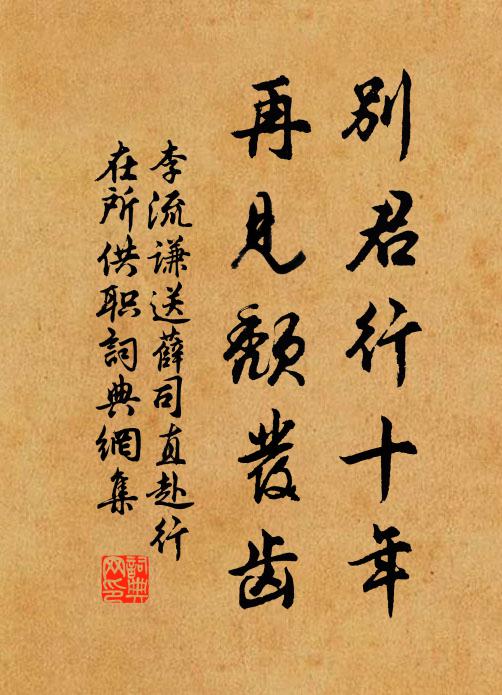 别君行十年
再见颓发齿
李流谦送薛司直赴行
在所供职词典网集
詞典
网印